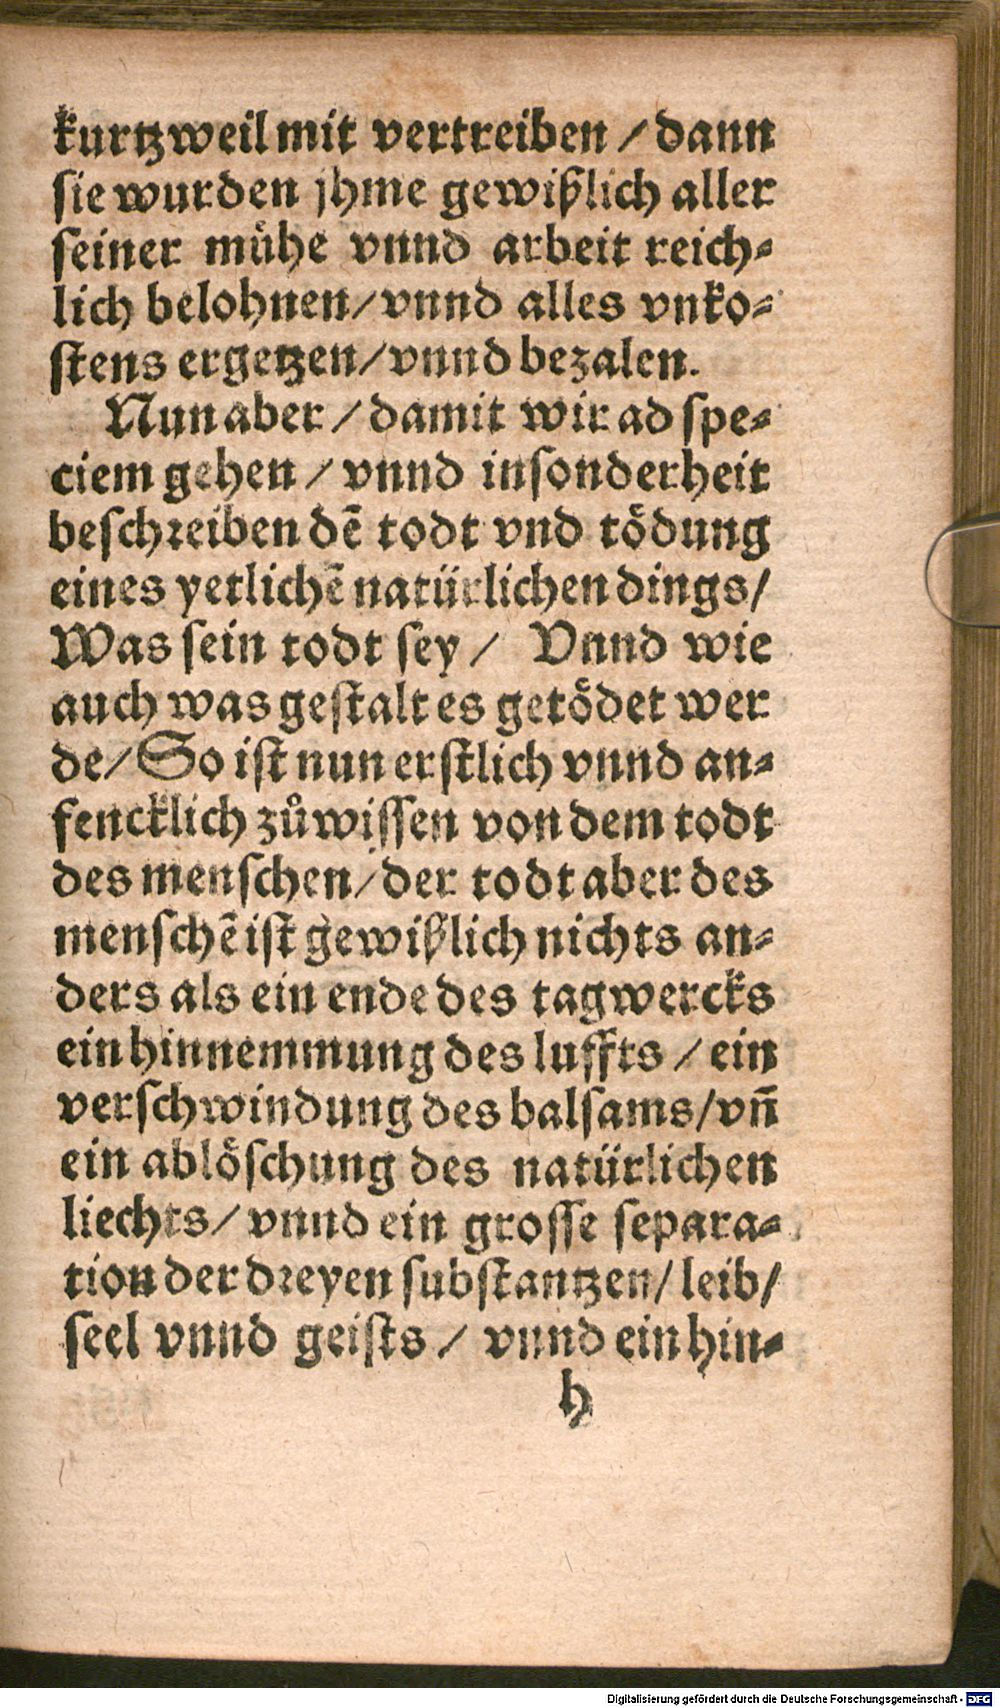 kurtzweil mit vertreiben / dann
sie wurden jhme gewißlich aller
seiner mühe vnnd arbeit reich-
lich belohnen / vnnd alles vnko-
stens ergetzen / vnnd bezalen.
Nun aber / damit wir ad spe-
ciem gehen / vnnd insonderheit
beschreiben dē todt vnd tödung
eines yetlichē natürlichen dings /
Was sein todt sey / Vnnd wie
auch was gestalt es getödet wer
de / So ist nun erstlich vnnd an-
fencklich zůwissen von dem todt
des menschen / der todt aber des
menschē ist gewißlich nichts an-
ders als ein ende des tagwercks
ein hinnemmung des luffts / ein
verschwindung des balsams / vn̄
ein ablöschung des natürlichen
liechts / vnnd ein grosse separa-
tion der dreyen substantzen / leib /
seel vnnd geists / vnnd ein hin-
h
Digitalisierung gefördert durch die Deutsche Forschungsgemeinschaft - DFG